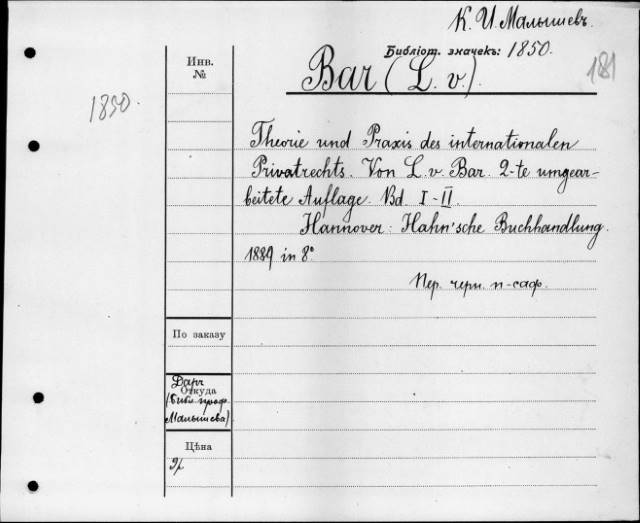 К. И. Малышевъ.
Библіот. значекъ: 1850.
181
Bar (L. v.)
Инв.
№
1850.
Theorie und Praxis des internationalen
Privatrechts. Von L. v. Bar. 2-te umgear-
beitete Auflage. Bd. I-II.
Hannover: Hahn'sche Buchhandlung.
1889 in 8º
Пер. черн. п-саф.
По заказу
Даръ
Откуда
(библ. проф.
Малышева)
Цѣна